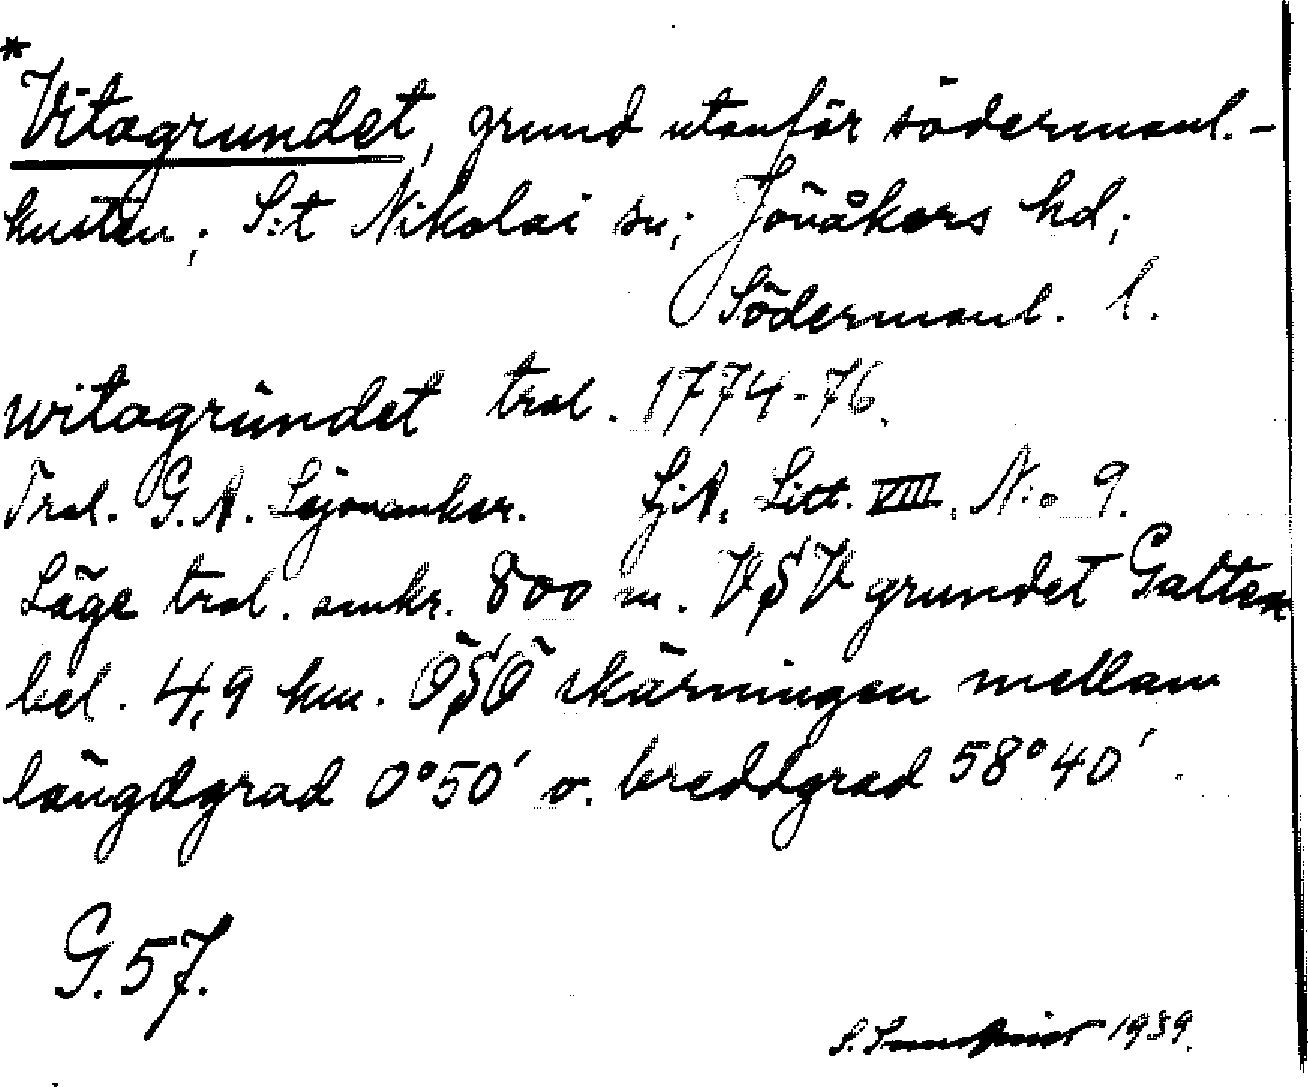 *
Vitagrundet, grund utanför södermanl.-
kusten; S:t Nikolai sn; Jönåkers hd;
Södermanl. l.
witagrŭndet trol. 1774-76.
Trol. G. A. Lejonanker. SjA. Litt. VIII. N:o 9.
Läge trol. omkr. 800 m. VSV grundet Galten
bel. 4,9 km. ÖSÖ skärningen mellan
längdgrad 0°50' o. breddgrad 58°40'.
G. 57.
S. 1939.